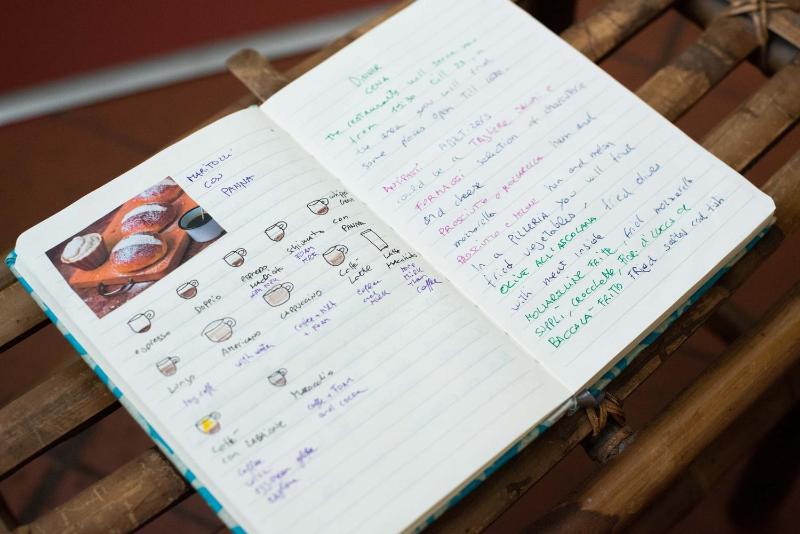 MARITOZZI
CON
PANNA
espresso
Doppio
ESPRESSO
MACCHIATO
with milk
schiumato
FOAM
MILK
con
PANNA
whipped
cream
Lungo
long coffee
Americano
with water
CAPPUCCINO
coffee + milk
+ foam
Caffè
Latte
espresso
and
MILK
Latte
Macchiato
more
MILK
THAN
Coffee
Caffè
con ZABAIONE
Coffee
with
Marocchino
coffee + foam
and cocoa
DINNER
CENA
The restaurants will serve you
from 19:30 till 23, in
the area you will find
some places open till late.
ANTIPASTI APPETIZERS
could be a TAGLIERE SALUMI E
FORMAGGI selection of charcuterie
and cheese
PROSCIUTTO E MOZZARELLA ham and
mozzarella
PROSCIUTTO E MELONE ham and melon
In a PIZZERIA you will find
fried vegetables,
OLIVE ALL'ASCOLANA fried olives
with meat inside
MOZZARELLINE FRITTE, fried mozzarella
SUPPLÌ, CROCCHETTE, FIORI DI ZUCCA OR
BACCALÀ FRITTO fried salted cod fish